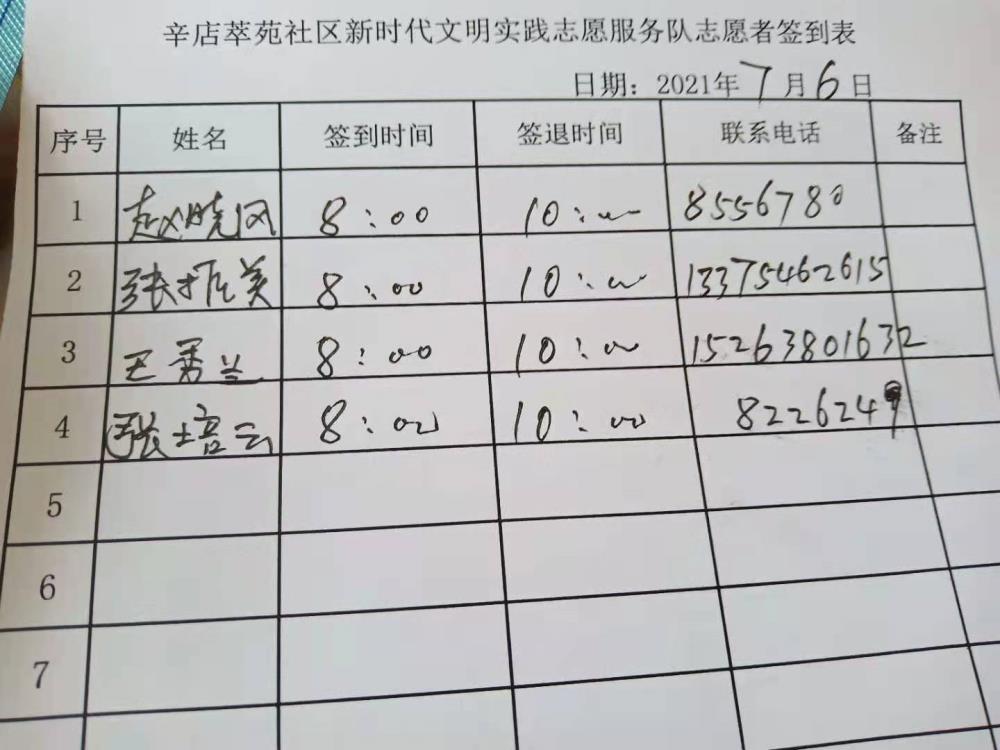 辛店萃苑社区新时代文明实践志愿服务队志愿者签到表
日期：2021年7月6日
序号 姓名 签到时间 签退时间 联系电话 备注
1 赵晓风 8:00 10:00 8556780
2 张振美 8:00 10:00 13375462615
3 王秀兰 8:00 10:00 15263801632
4 张培云 8:00 10:00 8226249
5
6
7